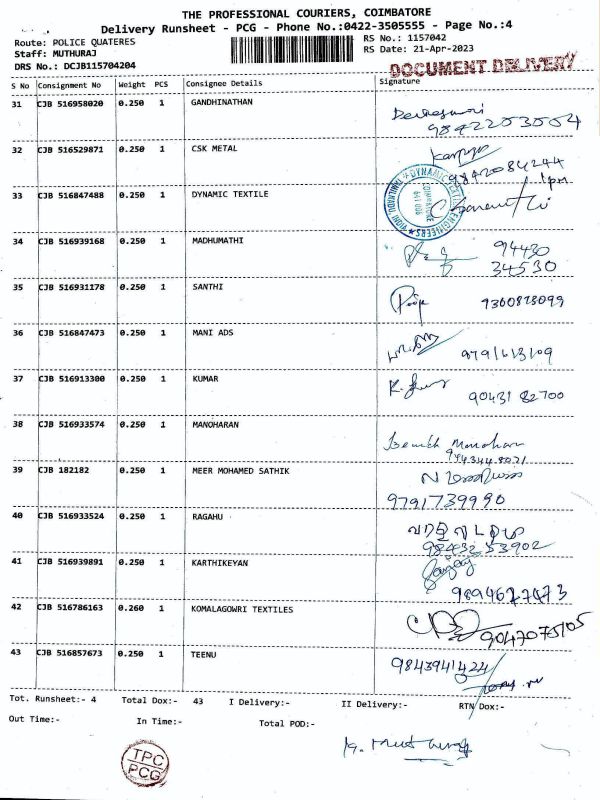 THE PROFESSIONAL COURIERS, COIMBATORE
Delivery Runsheet - PCG - Phone No.:0422-3505555 - Page No.:4
Route: POLICE QUATERES
RS No.: 1157042
Staff: MUTHURAJ
RS Date: 21-Apr-2023
DRS No.: DCJB115704204
DOCUMENT DELIVERY
S No Consignment No Weight PCS Consignee Details Signature
31 CJB 516958020 0.250 1 GANDHINATHAN
32 CJB 516529871 0.250 1 CSK METAL
9842084244
1pm
33 CJB 516847488 0.250 1 DYNAMIC TEXTILE
34 CJB 516939168 0.250 1 MADHUMATHI
94430
34530
35 CJB 516931178 0.250 1 SANTHI
36 CJB 516847473 0.250 1 MANI ADS
9791613109
37 CJB 516913300 0.250 1 KUMAR
90431 82700
38 CJB 516933574 0.250 1 MANOHARAN
Manoharan
39 CJB 182182 0.250 1 MEER MOHAMED SATHIK
9791739990
40 CJB 516933524 0.250 1 RAGAHU
9843253902
41 CJB 516939891 0.250 1 KARTHIKEYAN
42 CJB 516786163 0.260 1 KOMALAGOWRI TEXTILES
43 CJB 516857673 0.250 1 TEENU
9843941424
Tot. Runsheet:- 4 Total Dox:- 43 I Delivery:- II Delivery:- RTN Dox:-
Out Time:- In Time:- Total POD:-
TPC
PCG